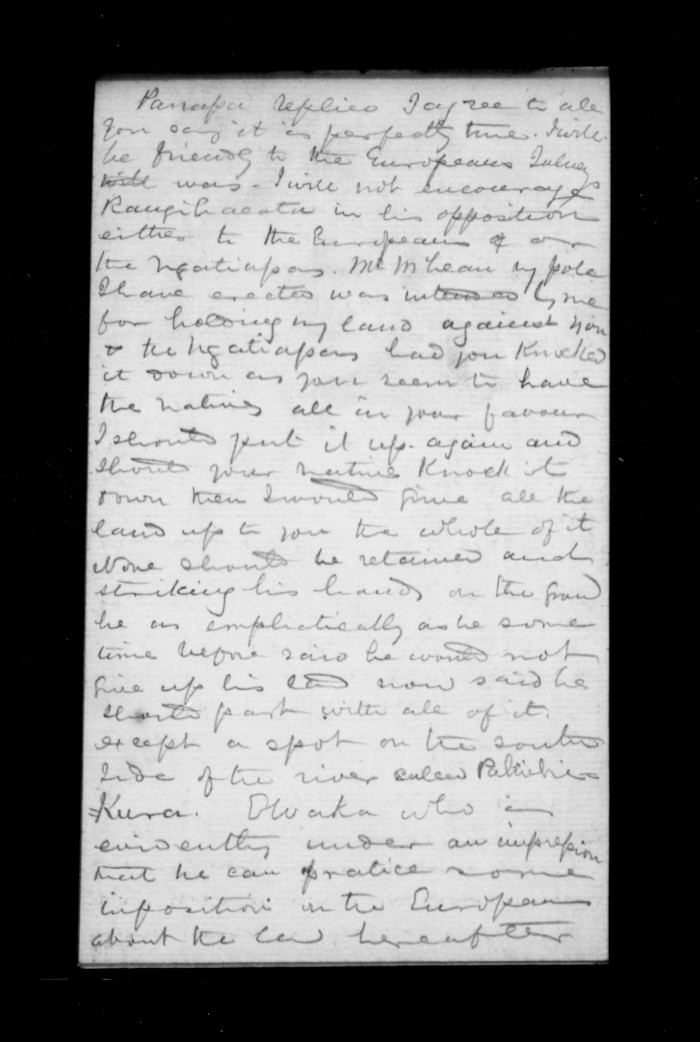 Panapa replies I agree to all
you say it is perfectly true. I will
be friendly to the Europeans I always
will was - I will not encourage
Rangihaeata in his opposition
either to the Europeans & or
the Ngatiapas. Mr McLean my pole
I have erected was intended by me
for holding my land against you
& the Ngatiapas had you knocked
it down as you seem to have
the natives all in your favour
I should put it up again and
should your natives knock it
down then I would give all the
land up to you the whole of it
None should be retained and
striking his hands on the ground
he as emphatically as he some
time before said he would not
give up his land now said he
should part with all of it.
except a spot on the south
side of the river called
Kura. who is
evidently under an impression
that he can practice some
imposition on the Europeans
about the land hereafter